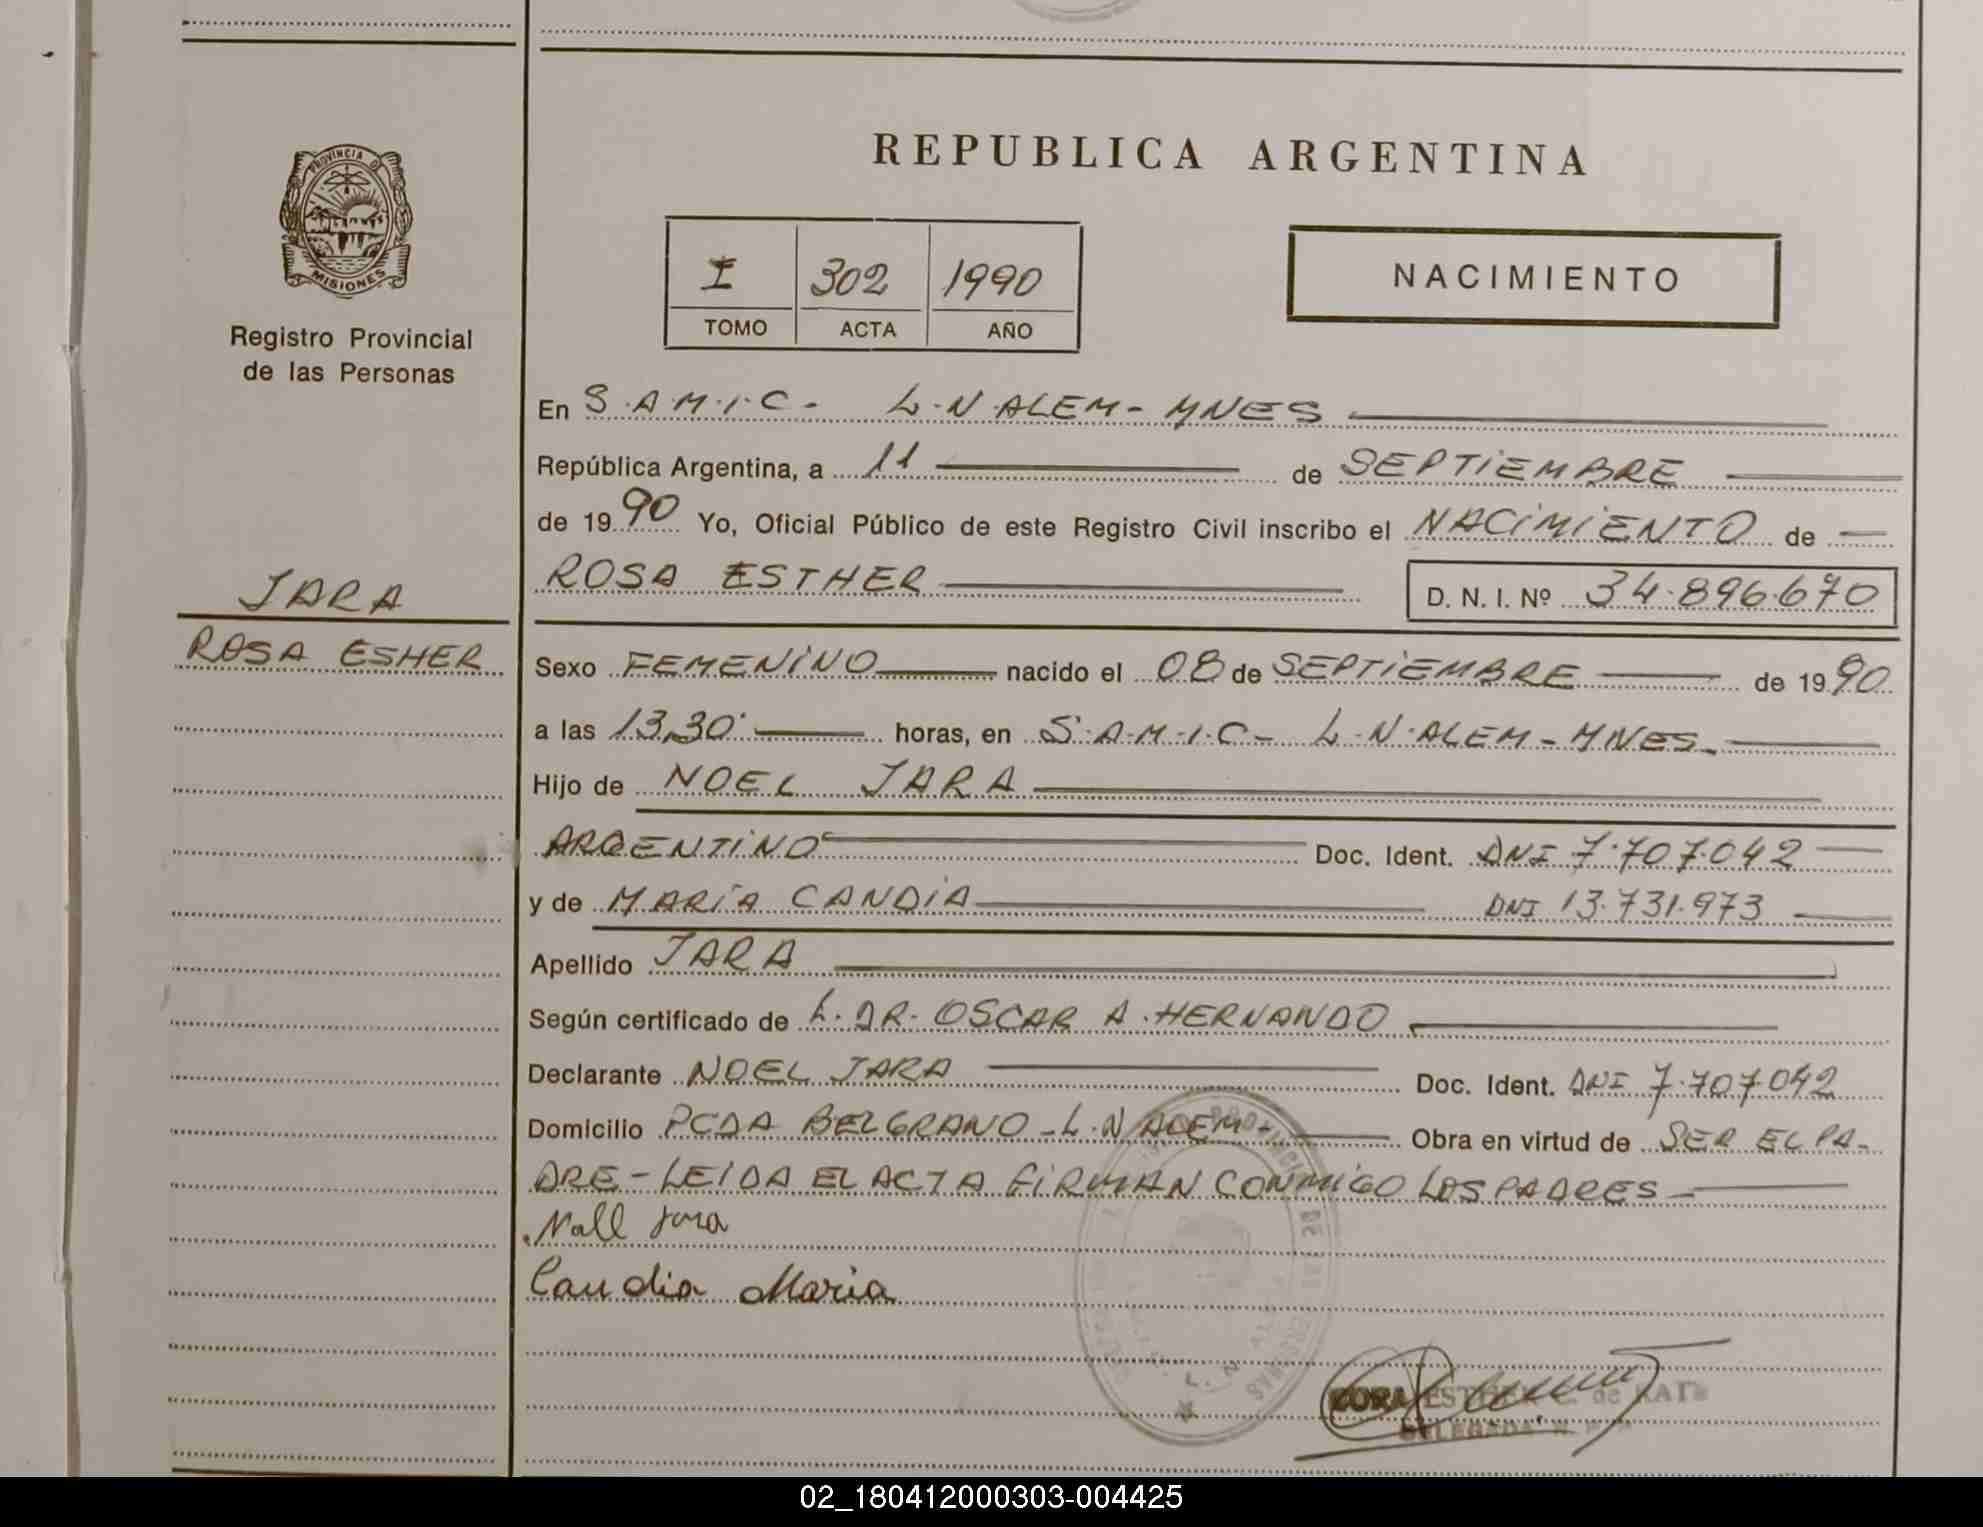 PROVINCIA DE
MISIONES
Registro Provincial
de las Personas
JARA
ROSA ESHER
REPUBLICA ARGENTINA
I 302 1990
TOMO ACTA AÑO
NACIMIENTO
En S.A.M.I.C- L.N.ALEM-MNES
República Argentina, a 11 de SEPTIEMBRE
de 1990 Yo, Oficial Público de este Registro Civil inscribo el NACIMIENTO de
ROSA ESTHER D. N. I. Nº 34.896.670
Sexo FEMENINO nacido el 08 de SEPTIEMBRE de 1990
a las 13,30 horas, en S.A.M.I.C- L.N.ALEM-MNES-
Hijo de NOEL JARA
ARGENTINO Doc. Ident. DNI 7.707.042
y de MARÍA CANDIA DNI 13.731.973
Apellido JARA
Según certificado de L. DR. OSCAR A. HERNANDO
Declarante NOEL JARA Doc. Ident. DNI 7.707.042
Domicilio PCDA BELGRANO-L.N ALEM- Obra en virtud de SER EL PA-
DRE-LEIDA EL ACTA FIRMAN CONMIGO LOS PADRES-
Noll Jara
Candia Maria
ESTHER de
DELEGADA
02_180412000303-004425